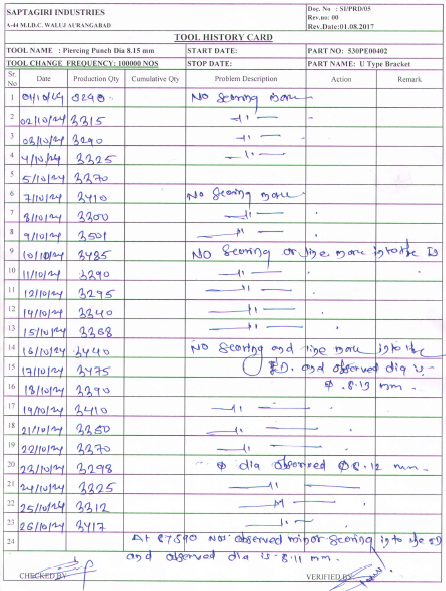 SAPTAGIRI INDUSTRIES
A-44 M.I.D.C. WALUJ AURANGABAD
Doc. No : SI/PRD/05
Rev.no: 00
Rev.Date:01.08.2017
TOOL HISTORY CARD
TOOL NAME : Piercing Punch Dia 8.15 mm START DATE: PART NO: 530PE00402
TOOL CHANGE FREQUENCY: 100000 NOS STOP DATE: PART NAME: U Type Bracket
Sr. No Date Production Qty Cumulative Qty Problem Description Action Remark
1 01/10/24 3290 No Scoring mark
2 02/10/24 3315 —11—
3 03/10/24 3290 —11—
4 4/10/24 3325 —11—
5 5/10/24 3370
6 7/10/24 3410 No Scoring mark
7 8/10/24 3300 —11—
8 9/10/24 3501 —11—
9 10/10/24 3485 No Scoring or line mark into the ID
10 11/10/24 3290 —11—
11 12/10/24 3295 —11—
12 14/10/24 3340 —11—
13 15/10/24 3368 —11—
14 16/10/24 3440 No Scoring and line mark into the
15 17/10/24 3475 ID. and observed dia is-
16 18/10/24 3390 Φ 8.13 mm.
17 19/10/24 3410 —11—
18 21/10/24 3350 —11—
19 22/10/24 3370 —11—
20 23/10/24 3298 Φ dia observed Φ 8.12 mm.
21 24/10/24 3325 —11—
22 25/10/24 3312 —11—
23 26/10/24 3417 —11—
24 At 87590 Nos observed minor scoring into the ID
and observed dia is 8.11 mm.
CHECKED BY VERIFIED BY